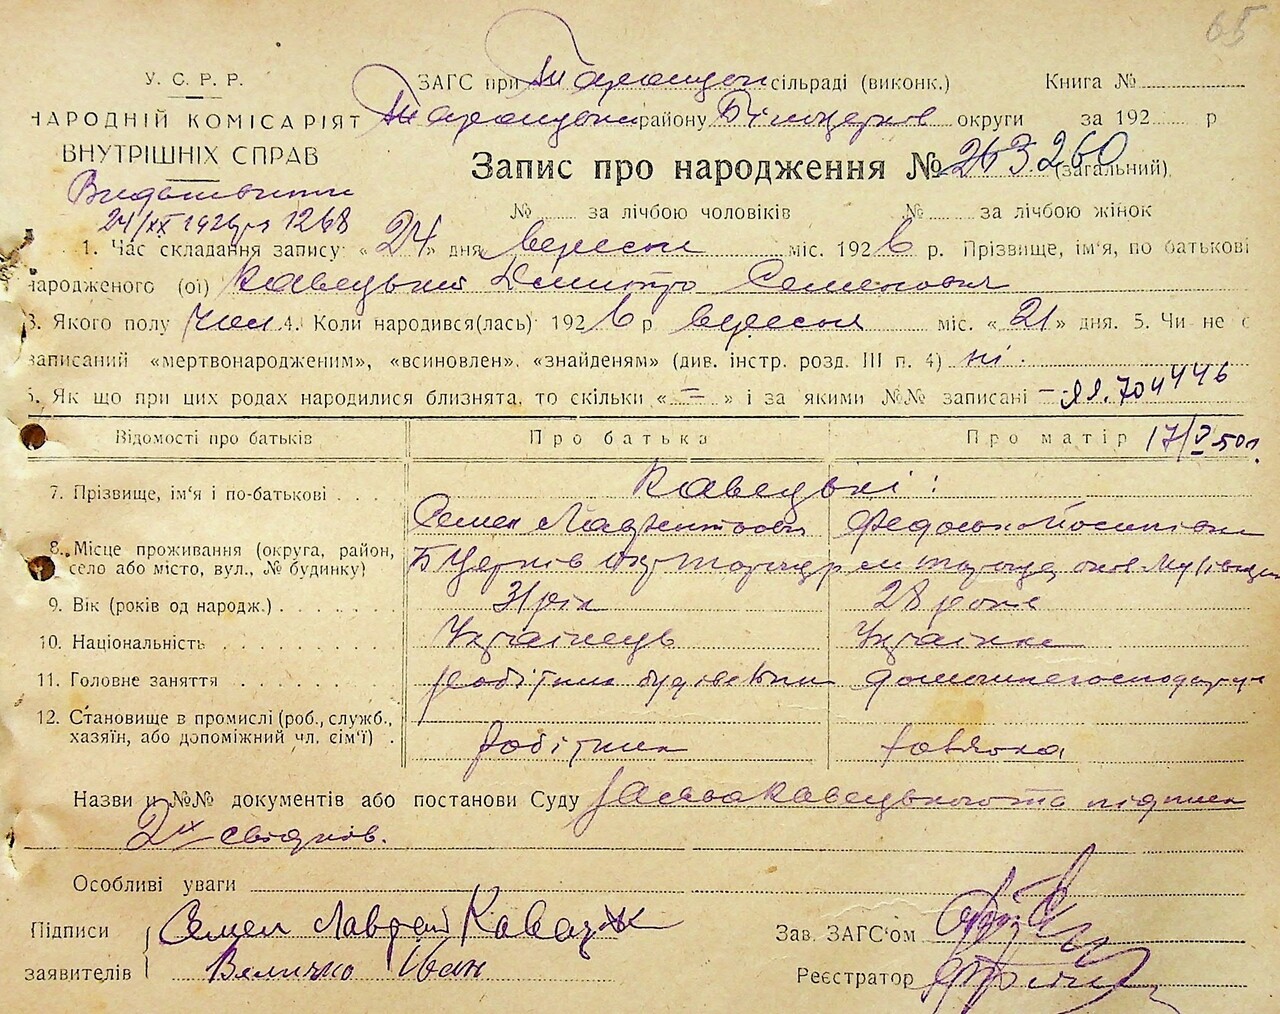 65
У. С. Р. Р.
НАРОДНІЙ КОМІСАРІЯТ
ВНУТРІШНІХ СПРАВ
ЗАГС при Таращан сільраді (виконк.) Книга №
Таращан району Білоцерків округи за 192 р
Запис про народження № 263 260 (загальний)
24/IX 1926 р 1268
№ за лічбою чоловіків № за лічбою жінок
1. Час складання запису: « 24 » дня вересня міс. 1926 р. Прізвище, ім'я, по батькові
народженого (ої) Кавецький Дмитро Семенович
3. Якого полу чол 4. Коли народився(лась) 1926 р вересня міс. « 21 » дня. 5. Чи не є
записаний «мертвонародженим», «всиновлен», «знайденям» (див. інстр. розд. III п. 4) ні.
6. Як що при цих родах народилися близнята, то скільки « – » і за якими №№ записані – ЯЯ. 704446
Відомості про батьків Про батька Про матір 17/V 50 г.
7. Прізвище, ім'я і по-батькові Кавецькі:
Семен Лаврентьович Федоська Йосипівна
8. Місце проживання (округа, район,
село або місто, вул., № будинку) Б Церків окр
9. Вік (років од народж.) 31 рік 28 років
10. Національність Українець Українка
11. Головне заняття робітник будівельник домашнє господар
12. Становище в промислі (роб., служб.,
хазяїн, або допоміжний чл. сім'ї) робітник
Назви и №№ документів або постанови Суду Заява Кавецького та підписи
2х свідків.
Особливі уваги
Підписи Семен Лаврен Кавец
заявителів Величко Іван
Зав. ЗАГС'ом
Реєстратор